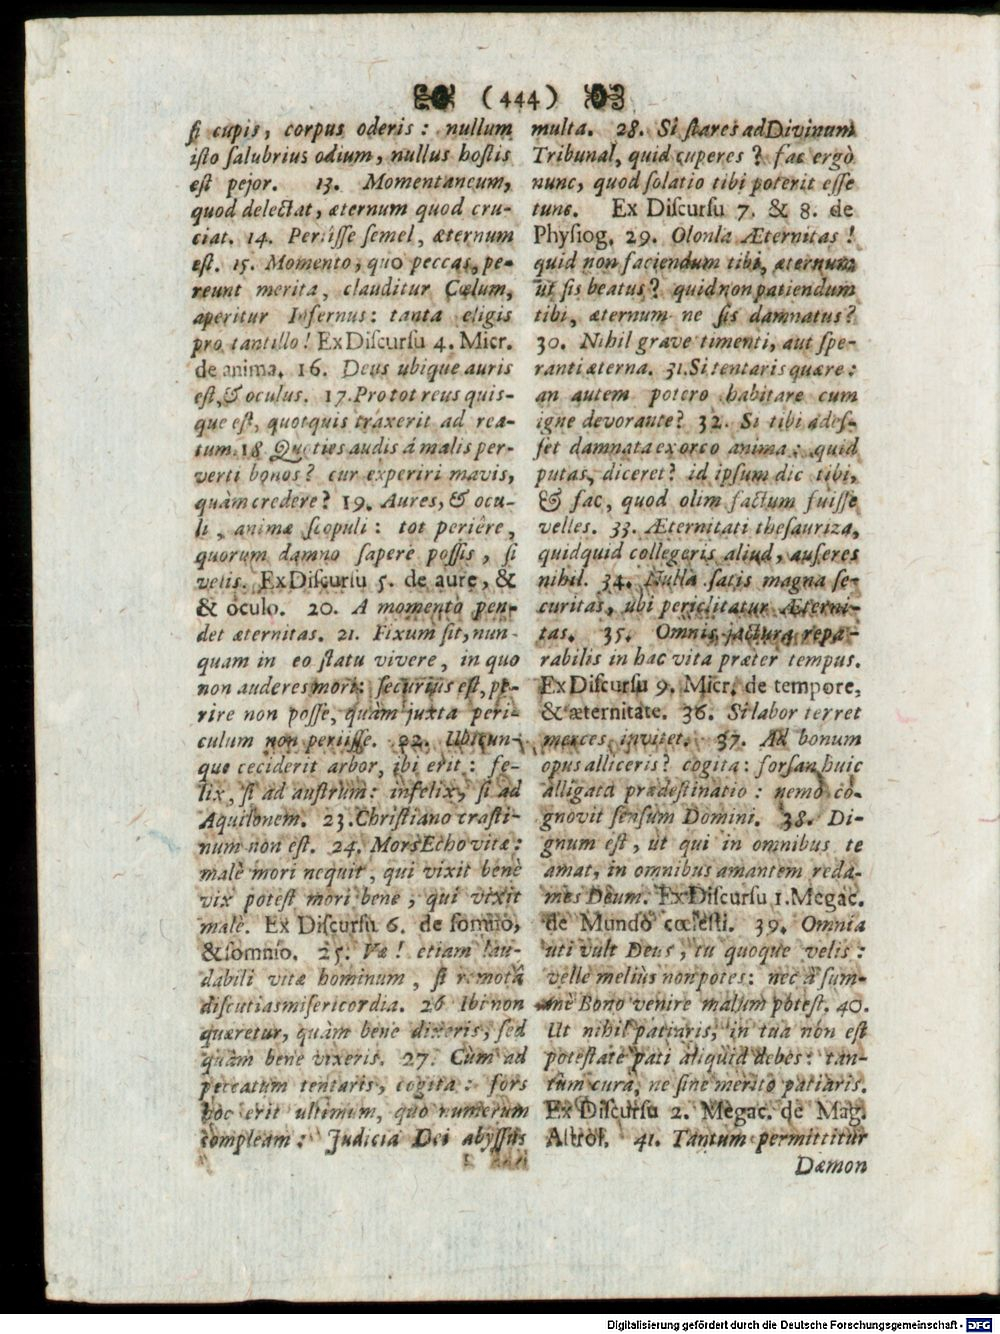 (444)
ſi cupis, corpus oderis: nullum
iſto ſalubrius odium, nullus hoſtis
eſt pejor. 13. Momentaneum,
quod delectat, æternum quod cru-
ciat. 14. Periiſſe ſemel, æternum
eſt. 15. Momento, quo peccas, pe-
reunt merita, clauditur Cœlum,
aperitur Infernus: tanta eligis
pro tantillo! Ex Diſcurſu 4. Micr.
de anima. 16. Deus ubique auris
eſt, & oculus. 17. Pro tot reus quis-
que eſt, quotquis tráxerit ad rea-
tum. 18 Quoties audis á malis per-
verti bonos? cur experiri mavis,
quàm credere? 19. Aures, & ocu-
li, animæ ſcopuli: tot periêre,
quorum damno ſapere poſſis, ſi
velis. Ex Diſcurſu 5. de aure, &
& oculo. 20. A momento pen-
det æternitas. 21. Fixum ſit, nun-
quam in eo ſtatu vivere, in quo
non auderes mori: ſecurius eſt, pe-
rire non poſſe, quàm juxta peri-
culum non periiſſe. 22. Ubicun-
que ceciderit arbor, ibi erit: fe-
lix, ſi ad auſtrum: infelix, ſi ad
Aquilonem. 23. Chriſtiano craſti-
num non eſt. 24. Mors Echo vitæ:
malè mori nequit, qui vixit benè
vix poteſt mori bene, qui vixit
malè. Ex Diſcurſu 6. de ſomno,
& ſomnio. 25. Væ! etiam lau-
dabili vitæ hominum, ſi remotâ
diſcutias miſericordia. 26 Ibi non
quæretur, quàm bene dixeris, ſed
quàm bene vixeris. 27. Cùm ad
peccatum tentaris, cogita: fors
hoc erit ultimum, quo numerum
compleam: Judicia Dei abyſſus
multa. 28. Si ſtares ad Divinum
Tribunal, quid cuperes? fac ergò
nunc, quod ſolatio tibi poterit eſſe
tunc. Ex Diſcurſu 7. & 8. de
Phyſiog. 29. O lonla Æternitas!
quid non faciendum tibi, æternum
ut ſis beatus? quid non patiendum
tibi, æternum ne ſis damnatus?
30. Nihil grave timenti, aut ſpe-
ranti æterna. 31. Si tentaris quære:
an autem potero habitare cum
igne devorante? 32. Si tibi adeſ-
ſet damnata ex orco anima: quid
putas, diceret? id ipſum dic tibi,
& fac, quod olim factum fuiſſe
velles. 33. Æternitati theſauriza,
quidquid collegeris aliud, auferes
nihil. 34. Nulla ſatis magna ſe-
curitas, ubi periclitatur Æterni-
tas. 35. Omnis jactura repa-
rabilis in hac vita præter tempus.
Ex Diſcurſu 9. Micr. de tempore,
& æternitate. 36. Si labor terret
merces invitet. 37. Ad bonum
opus alliceris? cogita: forſan huic
alligata prædeſtinatio: nemo co-
gnovit ſenſum Domini. 38. Di-
gnum eſt, ut qui in omnibus te
amat, in omnibus amantem reda-
mes Deum. Ex Diſcurſu 1. Megac.
de Mundo cœleſti. 39. Omnia
uti vult Deus, tu quoque velis:
velle melius non potes: nec à ſum-
mè Bono venire malum poteſt. 40.
Ut nihil patiaris, in tua non eſt
poteſtate pati aliquid debes: tan-
tùm cura, ne ſine merito patiaris.
Ex Diſcurſu 2. Megac. de Mag.
Aſtrol. 41. Tantum permittitur
Dæmon
Digitalisierung gefördert durch die Deutsche Forschungsgemeinschaft - DFG